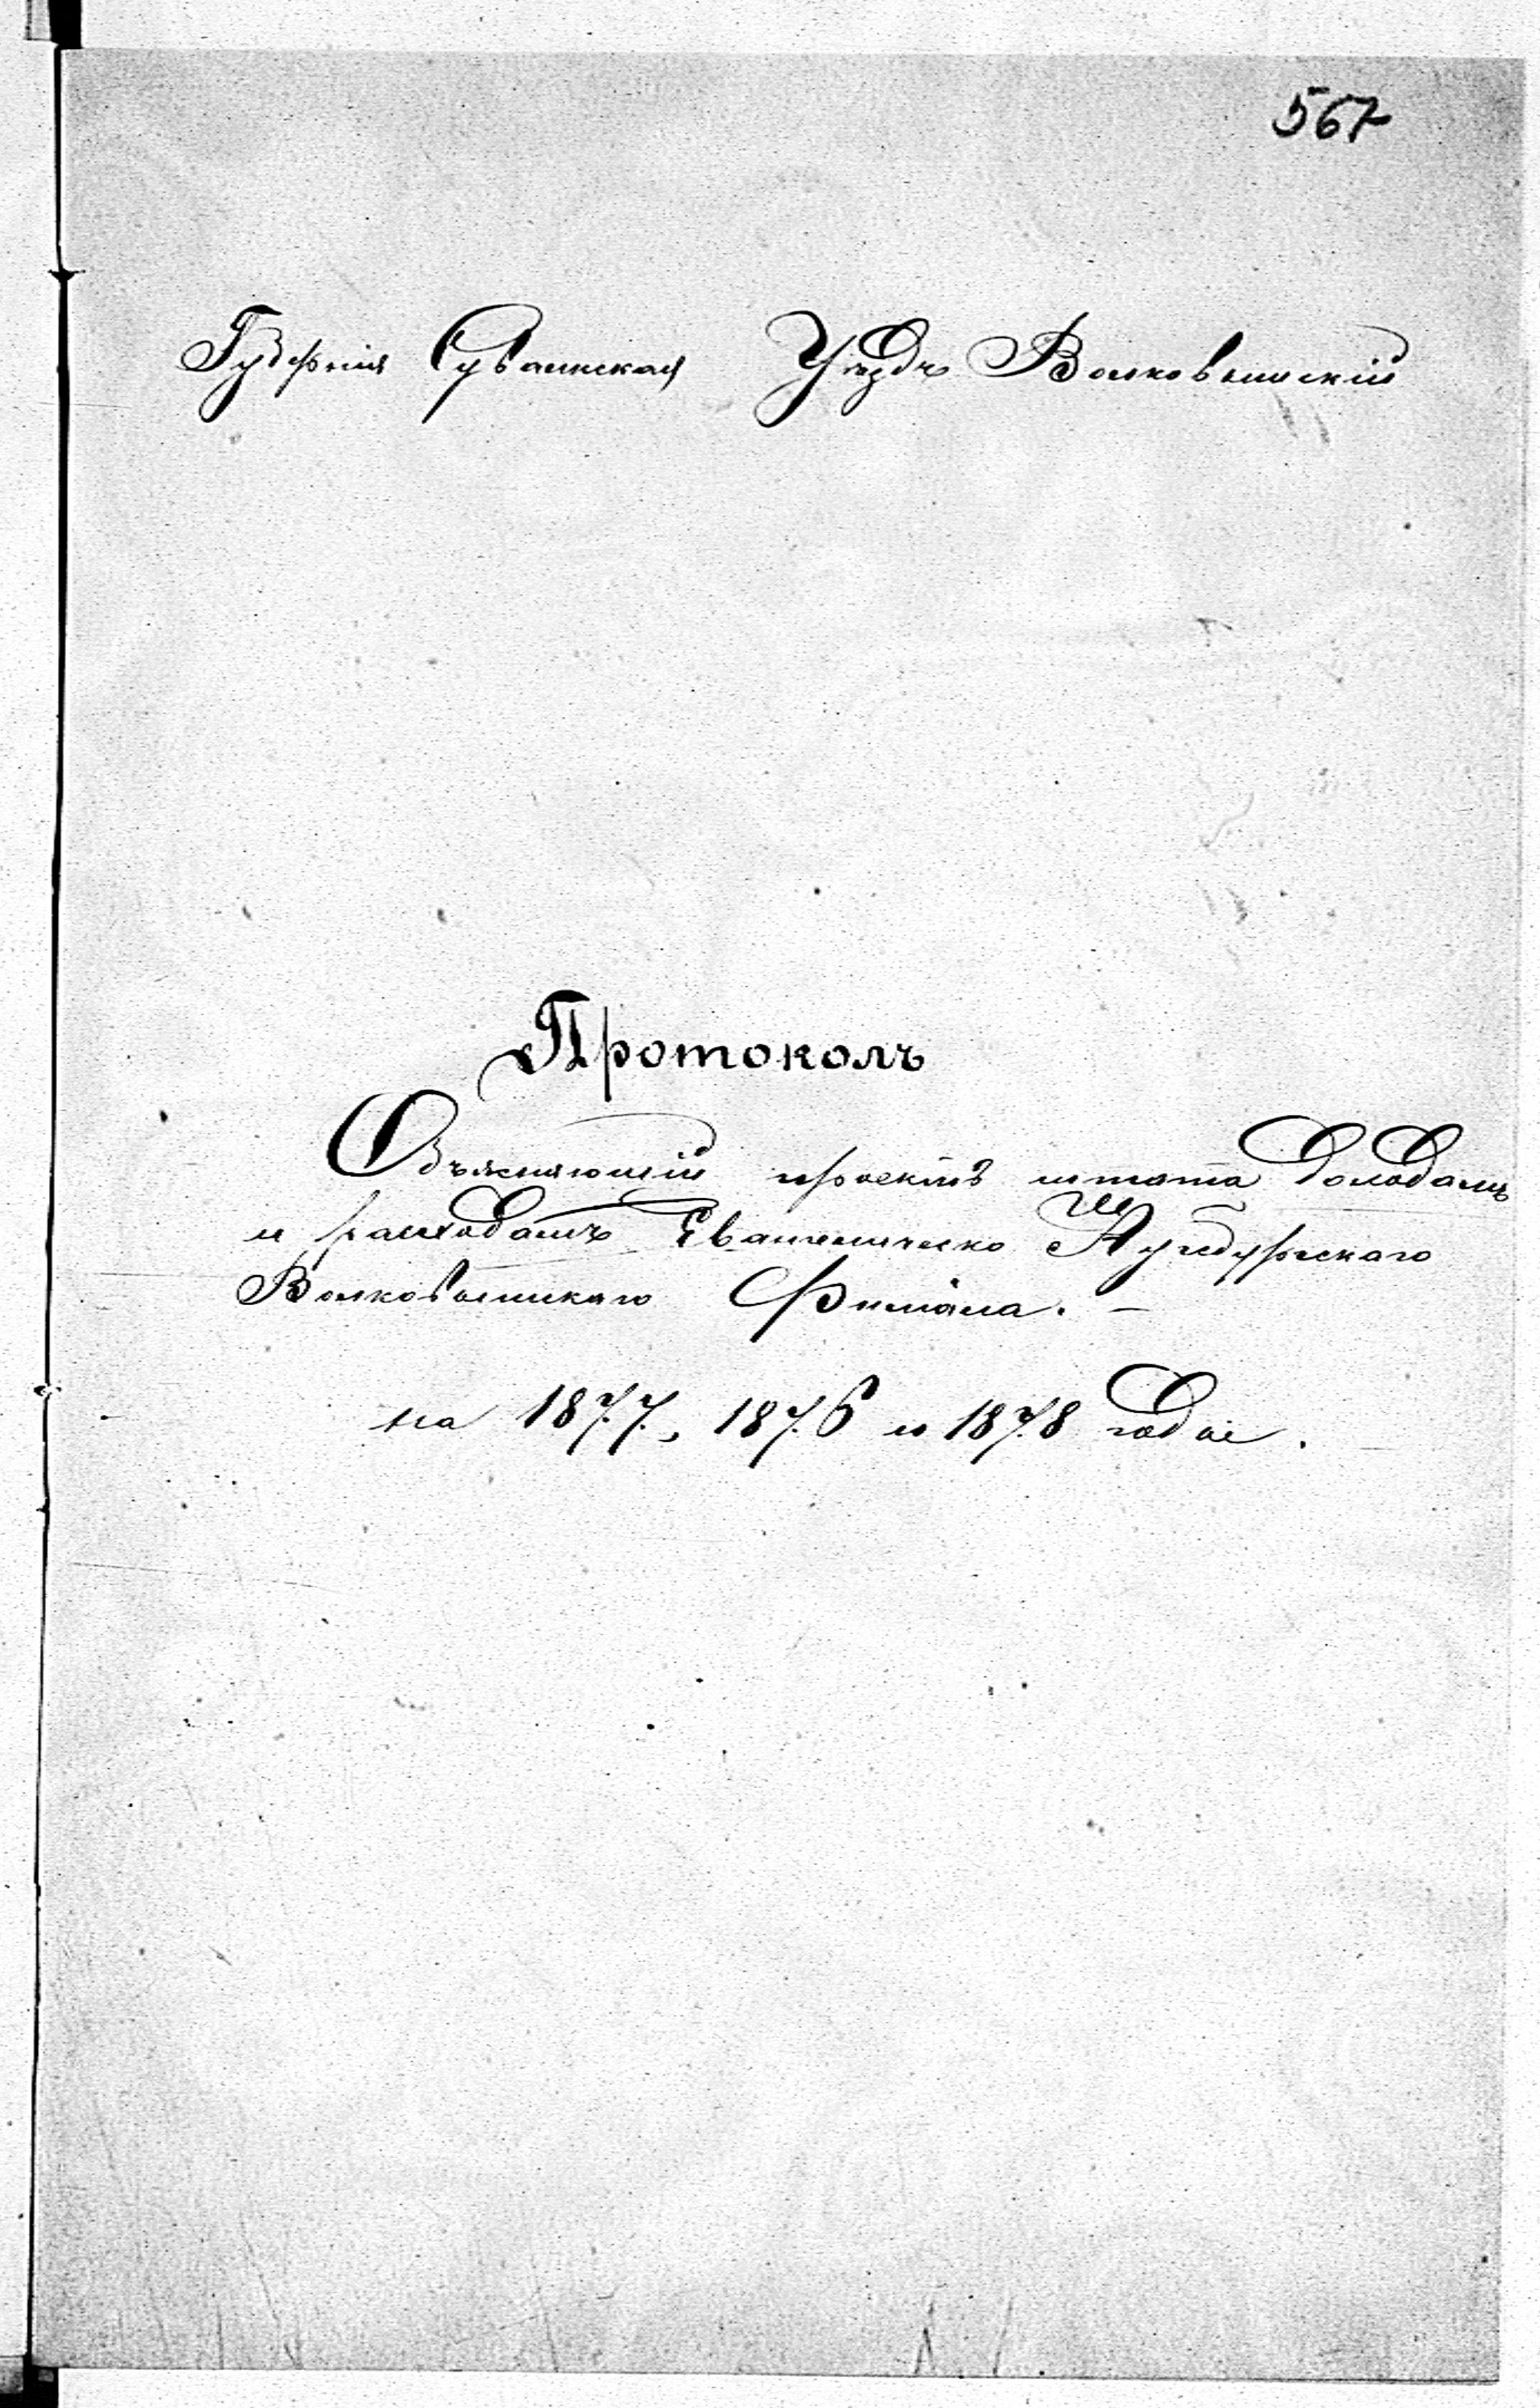 567
Губернія Сувалкская Уѣздъ Волковышскій
Протоколъ
Объясняющій проектъ штата доходамъ
и расходамъ Евангелическо Аугсбургскаго
Волковышскаго Филіала. —
на 1877, 1876 и 1878 годы.